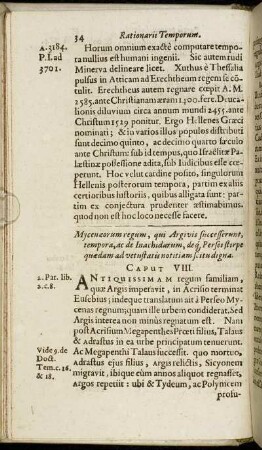 34 Rationarii Temporum.
A. 3184. Horum omnium exactè computare tempora
P. I. ad nullius est humani ingenii. Sic autem rudi
3701. Minerva delineare licet. Xuthus è Thessalia
pulsus in Atticam ad Erechtheum regem se cōtulit.
Erechtheus autem regnare cœpit A. M.
2585. ante Christianam æram 1300. fere. Deucalionis
diluvium circa annum mundi 2455. ante
Christum 1529 ponitur. Ergo Hellenes Græci
nominati; & io varios illius populos distributi
sunt decimo quinto, ac decimo quarto sæculo
ante Christum: sub id tempus, quo Israëlitæ Palæstinæ
possessione adita, sub Iudicibus esse cœperunt.
Hoc velut cardine posito, singulorum
Hellenis posterorum tempora, partim ex aliis
certioribus historiis, quibus alligata sunt: partim
ex conjectura prudenter æstimabimus.
quod non est hoc loco necesse facere.
Mycenæorum regum, qui Argivis successerunt,
tempora, ac de Inachidarum, deq; Persei stirpe
quædam ad vetustatis notitiam scitu digna.
CAPUT VIII.
2. Pat. lib. ANTIQUISSIMAM regum familiam,
2. c. 8. quæ Argis imperavit, in Acrisio terminat
Eusebius; indeque translatum ait à Perseo Mycenas
regnum; quam ille urbem condiderat. Sed
Argis interea non minùs regnatum est. Nam
post Acrisium Megapenthes Prœti filius, Talaus
& Adrastus in ea urbe principatum tenuerunt.
Vide 9. de Ac Megapenthi Talaus successit. quo mortuo,
Doct. Adrastus ejus filius, Argis relictis, Sicyonem
Tem. c. 16. migravit, ibique cùm annos aliquot regnasset,
& 18. Argos repetiit: ubi & Tydeum, ac Polynicem
profu-